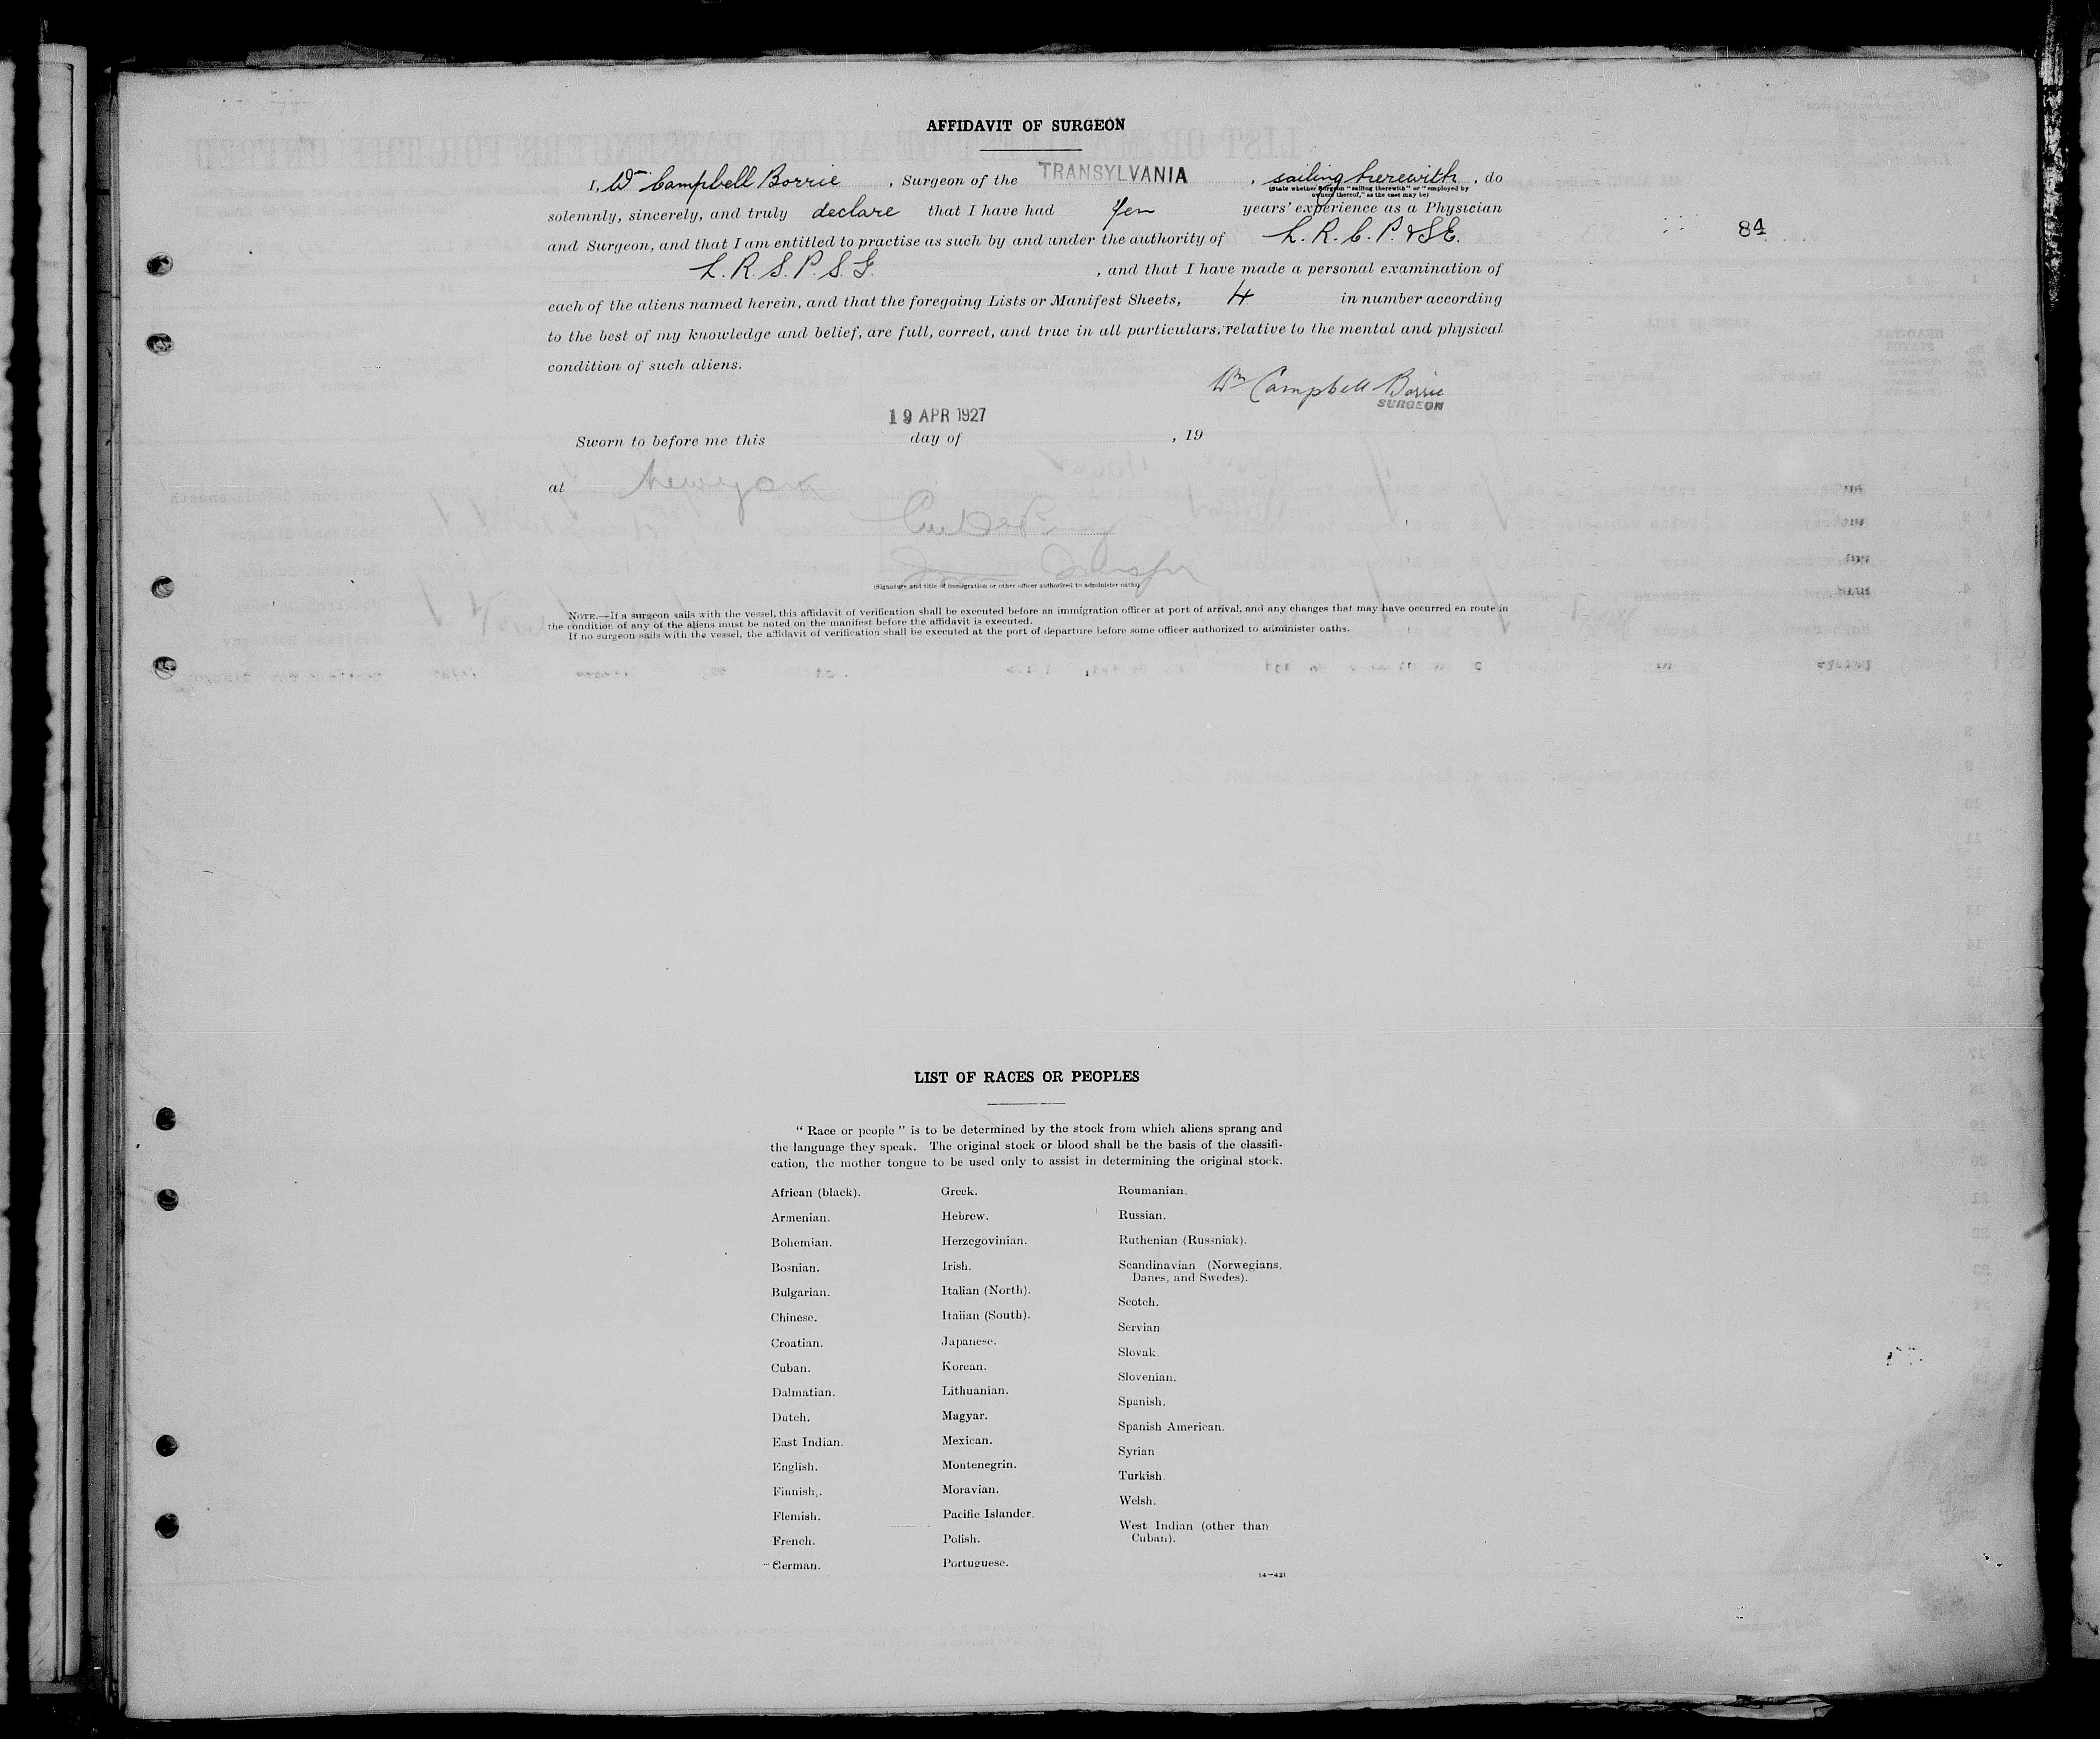 AFFIDAVIT OF SURGEON
I, Wm Campbell Borrie , Surgeon of the TRANSYLVANIA , sailing therewith , do
(State whether Surgeon "sailing therewith" or "employed by
owners thereof," as the case may be)
solemnly, sincerely, and truly declare that I have had Ten years' experience as a Physician
and Surgeon, and that I am entitled to practise as such by and under the authority of L. R. C. P. & S.E.
84
L. R. S. P. S. G. , and that I have made a personal examination of
each of the aliens named herein, and that the foregoing Lists or Manifest Sheets, 4 in number according
to the best of my knowledge and belief, are full, correct, and true in all particulars, relative to the mental and physical
condition of such aliens.
Wm Campbell Borrie
SURGEON
19 APR 1927
Sworn to before me this day of , 19
at New York
(Signature and title of immigration or other officer authorized to administer oaths)
NOTE.—If a surgeon sails with the vessel, this affidavit of verification shall be executed before an immigration officer at port of arrival, and any changes that may have occurred en route in
the condition of any of the aliens must be noted on the manifest before the affidavit is executed.
If no surgeon sails with the vessel, the affidavit of verification shall be executed at the port of departure before some officer authorized to administer oaths.
LIST OF RACES OR PEOPLES
"Race or people" is to be determined by the stock from which aliens sprang and
the language they speak. The original stock or blood shall be the basis of the classifi-
cation, the mother tongue to be used only to assist in determining the original stock.
African (black).
Armenian.
Bohemian.
Bosnian.
Bulgarian.
Chinese.
Croatian.
Cuban.
Dalmatian.
Dutch.
East Indian.
English.
Finnish.
Flemish.
French.
German.
Greek.
Hebrew.
Herzegovinian.
Irish.
Italian (North).
Italian (South).
Japanese.
Korean.
Lithuanian.
Magyar.
Mexican.
Montenegrin.
Moravian.
Pacific Islander.
Polish.
Portuguese.
Roumanian.
Russian.
Ruthenian (Russniak).
Scandinavian (Norwegians,
Danes, and Swedes).
Scotch.
Servian
Slovak.
Slovenian.
Spanish.
Spanish American.
Syrian
Turkish
Welsh.
West Indian (other than
Cuban).
14—431